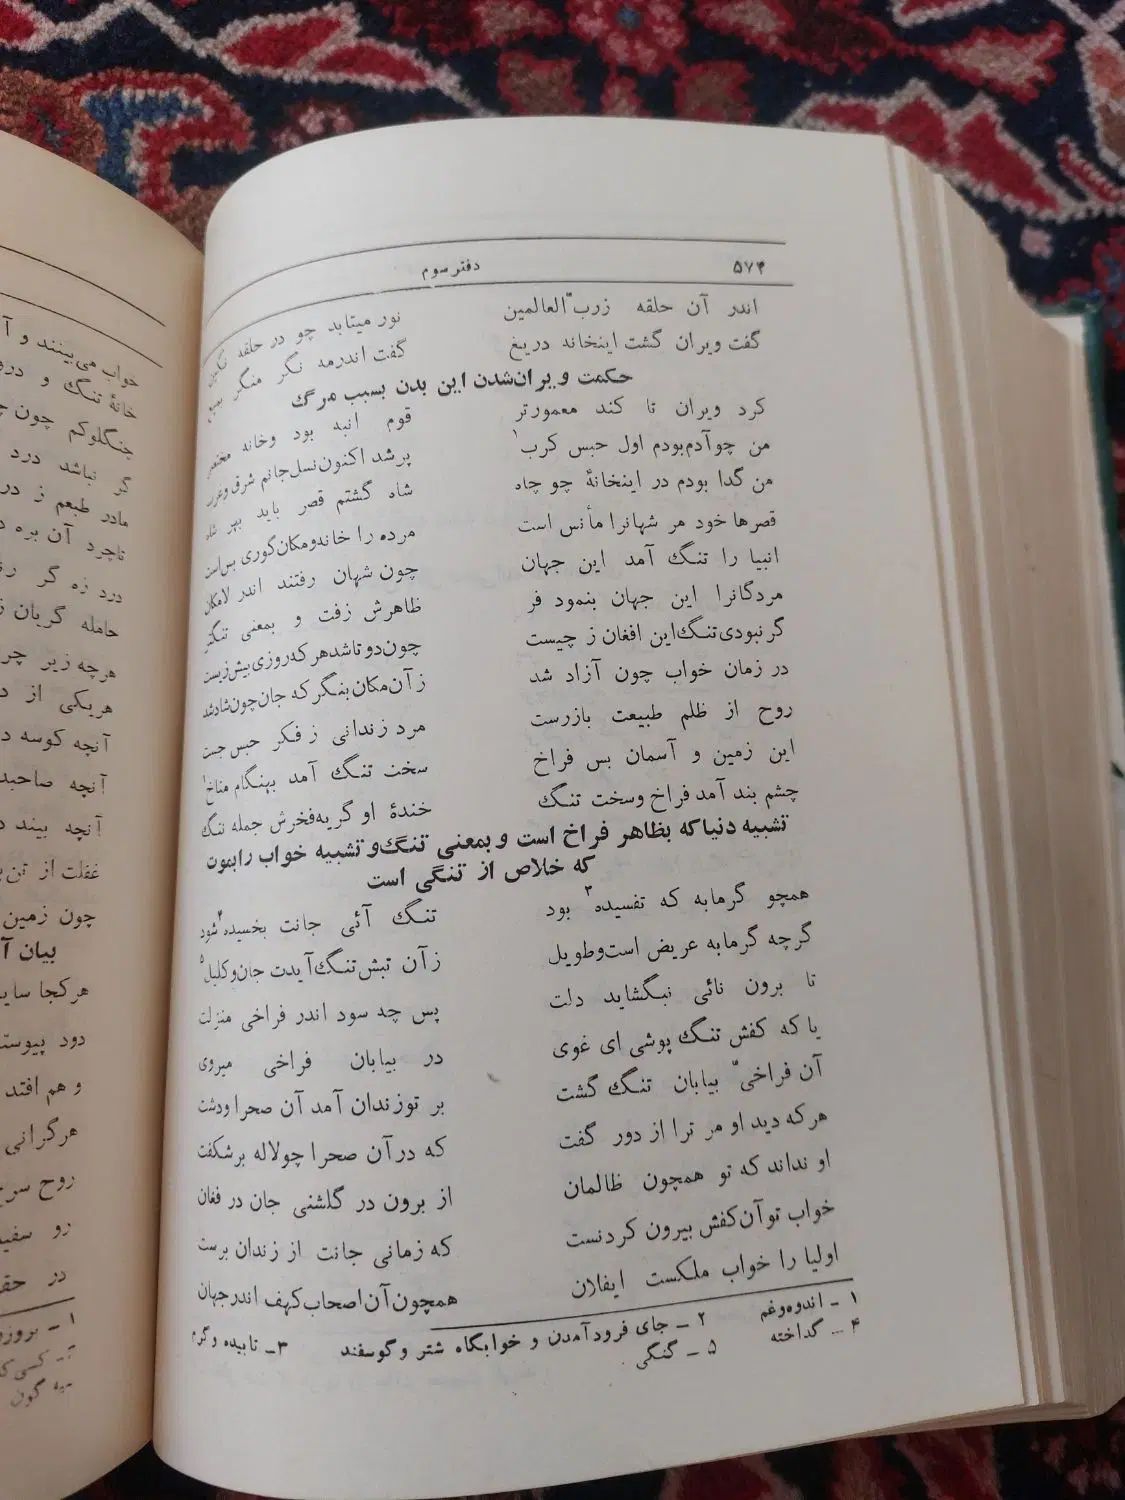 ۵۷۴ دفتر سوم
اندر آن حلقه زرب العالمین نور میتابد چو در حلقه نگین
گفت ویران گشت اینخانه دریغ گفت اندر مه نگر منگر بمیغ
حکمت ویران‌شدن این بدن بسبب مرگ
کرد ویران تا کند معمورتر قوم انبه بود وخانه مختصر
من چوآدم‌بودم اول حبس کرب۱ پرشد اکنون‌نسل‌جانم شرق وغرب
من گدا بودم در اینخانهٔ چو چاه شاه گشتم قصر باید بهر شاه
قصرها خود مر شهانرا مأنس است مرده را خانه‌ومکان‌گوری بس‌است
انبیا را تنگ آمد این جهان چون شهان رفتند اندر لامکان
مردگانرا این جهان بنمود فر ظاهرش زفت و بمعنی تنگتر
گر نبودی‌تنگ‌این افغان ز چیست چون‌دوتاشدهر که‌دروزی‌بیش‌زیست
در زمان خواب چون آزاد شد زآن‌مکان‌بنگر که جان‌چون‌شادشد
روح از ظلم طبیعت بازرست مرد زندانی ز فکر حبس جست
این زمین و آسمان بس فراخ سخت تنگ آمد بهنگام مناخ۲
چشم بند آمد فراخ وسخت تنگ خندهٔ او گریه‌فخرش جمله ننگ
تشبیه دنیاکه بظاهر فراخ است و بمعنی تنگ‌و تشبیه خواب رابموت
که خلاص از تنگی است
همچو گرمابه که تفسیده۳ بود تنگ آئی جانت بخسیده۴ شود
گرچه گرمابه عریض است‌وطویل زآن تبش‌تنگ‌آیدت جان‌وکلیل۵
تا برون نائی نبگشاید دلت پس چه سود اندر فراخی منزلت
یا که کفش تنگ پوشی ای غوی در بیابان فراخی میروی
آن فراخی بیابان تنگ گشت بر توزندان آمد آن صحرا ودشت
هرکه دید او مر ترا از دور گفت که درآن صحرا چولاله برشکفت
او نداند که تو همچون ظالمان از برون در گلشنی جان در فغان
خواب توآن‌کفش بیرون کردنست که زمانی جانت از زندان برست
اولیا را خواب ملکست ایفلان همچون‌آن‌اصحاب‌کهف اندرجهان
۱ ــ اندوه‌وغم ۲ ــ جای فرودآمدن و خوابگاه شتر وگوسفند ۳ــ تابیده و گرم
۴ ــ گداخته ۵ ــ گنگی
خواب می‌بینند و آ
خانهٔ تنگ و درو
چنگلوکم چون
گر نباشد درد
مادر طبعم ز در
تاچرد آن بره
درد زه گر
حامله گریان ز
هرچه زیر چر
هریکی از
آنچه کوسه
آنچه صاحبد
آنچه بیند
غفلت از تن
چون زمین
بیان آ
هرکجا سای
دود پیوسته
و هم افتد
هرگرانی
روح سرخ
رو سفید
در حق
۱ ــ بروز
کسی ک
گون